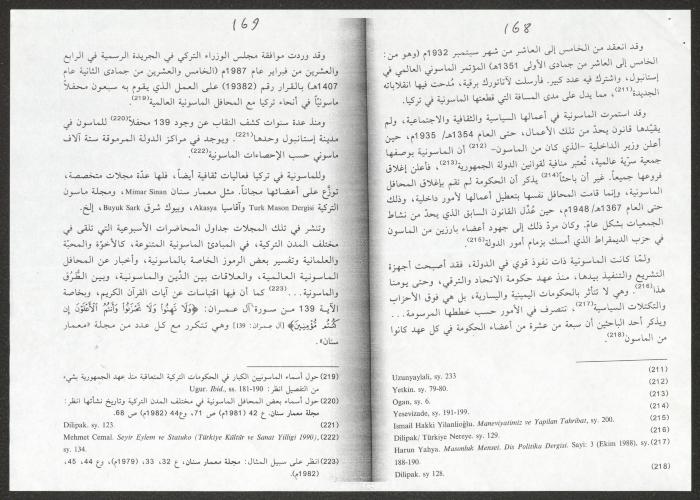 168
وقد انعقد من الخامس إلى العاشر من شهر سبتمبر 1932م (وهو من:
الخامس إلى العاشر من جمادى الأولى 1351هـ) المؤتمر الماسوني العالمي في
إستانبول، واشترك فيه عدد كبير. فأرسلت لأتاتورك برقية، مُدحت فيها انقلاباته
الجديدة(211)، مما يدل على مدى المسافة التي قطعتها الماسونية في تركيا.
وقد استمرت الماسونية في أعمالها السياسية والثقافية والاجتماعية، ولم
يقيّدها قانون يحدّ من تلك الأعمال، حتى العام 1354هـ/ 1935م، حين
أعلن وزير الداخلية -الذي كان من الماسون- (212) أن الماسونية بوصفها
جمعية سرّية عالمية، تُعتبر منافية لقوانين الدولة الجمهورية(213)، فأعلن إغلاق
فروعها جميعاً. غير أن باحثاً(214) يذكر أن الحكومة لم تقم بإغلاق المحافل
الماسونية، وإنما قامت المحافل نفسها بتعطيل أعمالها لأمور داخلية، وذلك
حتى العام 1367هـ/ 1948م، حين عُدّل القانون السابق الذي يحدّ من نشاط
الجمعيات بشكل عامّ. وكان مردّ ذلك إلى جهود أعضاء بارزين من الماسون
في حزب الديمقراط الذي أمسك بزمام أمور الدولة(215)
ولمّا كانت الماسونية ذات نفوذ قوي في الدولة، فقد أصبحت أجهزة
التشريع والتنفيذ بيدها، منذ عهد حكومة الاتحاد والترقي، وحتى يومنا
هذا(216). وهي لا تتأثر بالحكومات اليمينية واليسارية، بل هي فوق الأحزاب
والتكتلات السياسية(217)، تتصرف في الأمور حسب خططها المرسومة...
ويذكر أحد الباحثين أن سبعة من عشرة من أعضاء الحكومة في كل عهد كانوا
من الماسون(218).
(211) Uzunyaylali, sy. 233
(212) Yetkin. sy. 79-80.
(213) Ogan, sy. 6.
(214) Yesevizade, sy. 191-199.
(215) Ismail Hakki Yilanlioğlu. Maneviyatimiz ve Yapilan Tahribat, sy. 200.
(216) Dilipak/ Türkiye Nereye. sy. 129.
(217) Harun Yahya. Masonluk Mensei. Dis Politika Dergisi. Sayi: 3 (Ekim 1988), sy.
188-190.
(218) Dilipak. sy 128.
169
وقد وردت موافقة مجلس الوزراء التركي في الجريدة الرسمية في الرابع
والعشرين من فبراير عام 1987م (الخامس والعشرين من جمادى الثانية عام
1407هـ) بالقرار رقم (19382) على العمل الذي يقوم به سبعون محفلاً
ماسونيّاً في أنحاء تركيا مع المحافل الماسونية العالمية(219).
ومنذ عدة سنوات كشف النقاب عن وجود 139 محفلاً(220) للماسون في
مدينة إستانبول وحدها(221). ويوجد في مراكز الدولة المرموقة ستة آلاف
ماسوني حسب الإحصاءات الماسونية(222)
وللماسونية في تركيا فعاليات ثقافية أيضاً، فلها عدّة مجلات متخصصة،
توزَّع على أعضائها مجاناً. مثل معمار سنان Mimar Sinan، ومجلة ماسون
التركية Turk Mason Dergisi وأقاسيا Akasya، وبيوك شرق Buyuk Sark، إلخ.
وتنشر في تلك المجلات جداول المحاضرات الأسبوعية التي تلقى في
مختلف المدن التركية، في المبادئ الماسونية المتنوعة، كالأخوّة والمحبّة
والعلمانية وتفسير بعض الرموز الخاصة بالماسونية، وأخبار عن المحافل
الماسونية العالمية، والعلاقات بين الدّين والماسونية، وبين الطُّرُق
والماسونية...(223) كما أن فيها اقتباسات عن آيات القرآن الكريم، وبخاصة
الآية 139 من سورة آل عمران: ﴿وَلَا تَهِنُوا وَلَا تَحْزَنُوا وَأَنتُمُ الْأَعْلَوْنَ إِن
كُنتُم مُّؤْمِنِينَ﴾ [آل عمران: 139] وهي تتكرر مع كل عدد من مجلة «معمار
سنان».
(219) حول أسماء الماسونيين الكبار في الحكومات التركية المتعاقبة منذ عهد الجمهورية بشيء
من التفصيل انظر: Ugur. Ibid., ss. 181-190
(220) حول أسماء بعض المحافل الماسونية في مختلف المدن التركية وتاريخ نشأتها انظر:
مجلة معمار سنان. ع 42 (1981م) ص 71، وع44 (1982م) ص 68.
(221) Dilipak. sy. 123.
(222) Mehmet Cemal. Seyir Eylem ve Statuko (Türkiye Kültür ve Sanat Yilligi 1990),
sy. 134.
(223) انظر على سبيل المثال: مجلة معمار سنان، ع 32، 33، (1979م)، وع 44، 45،
(1982م).